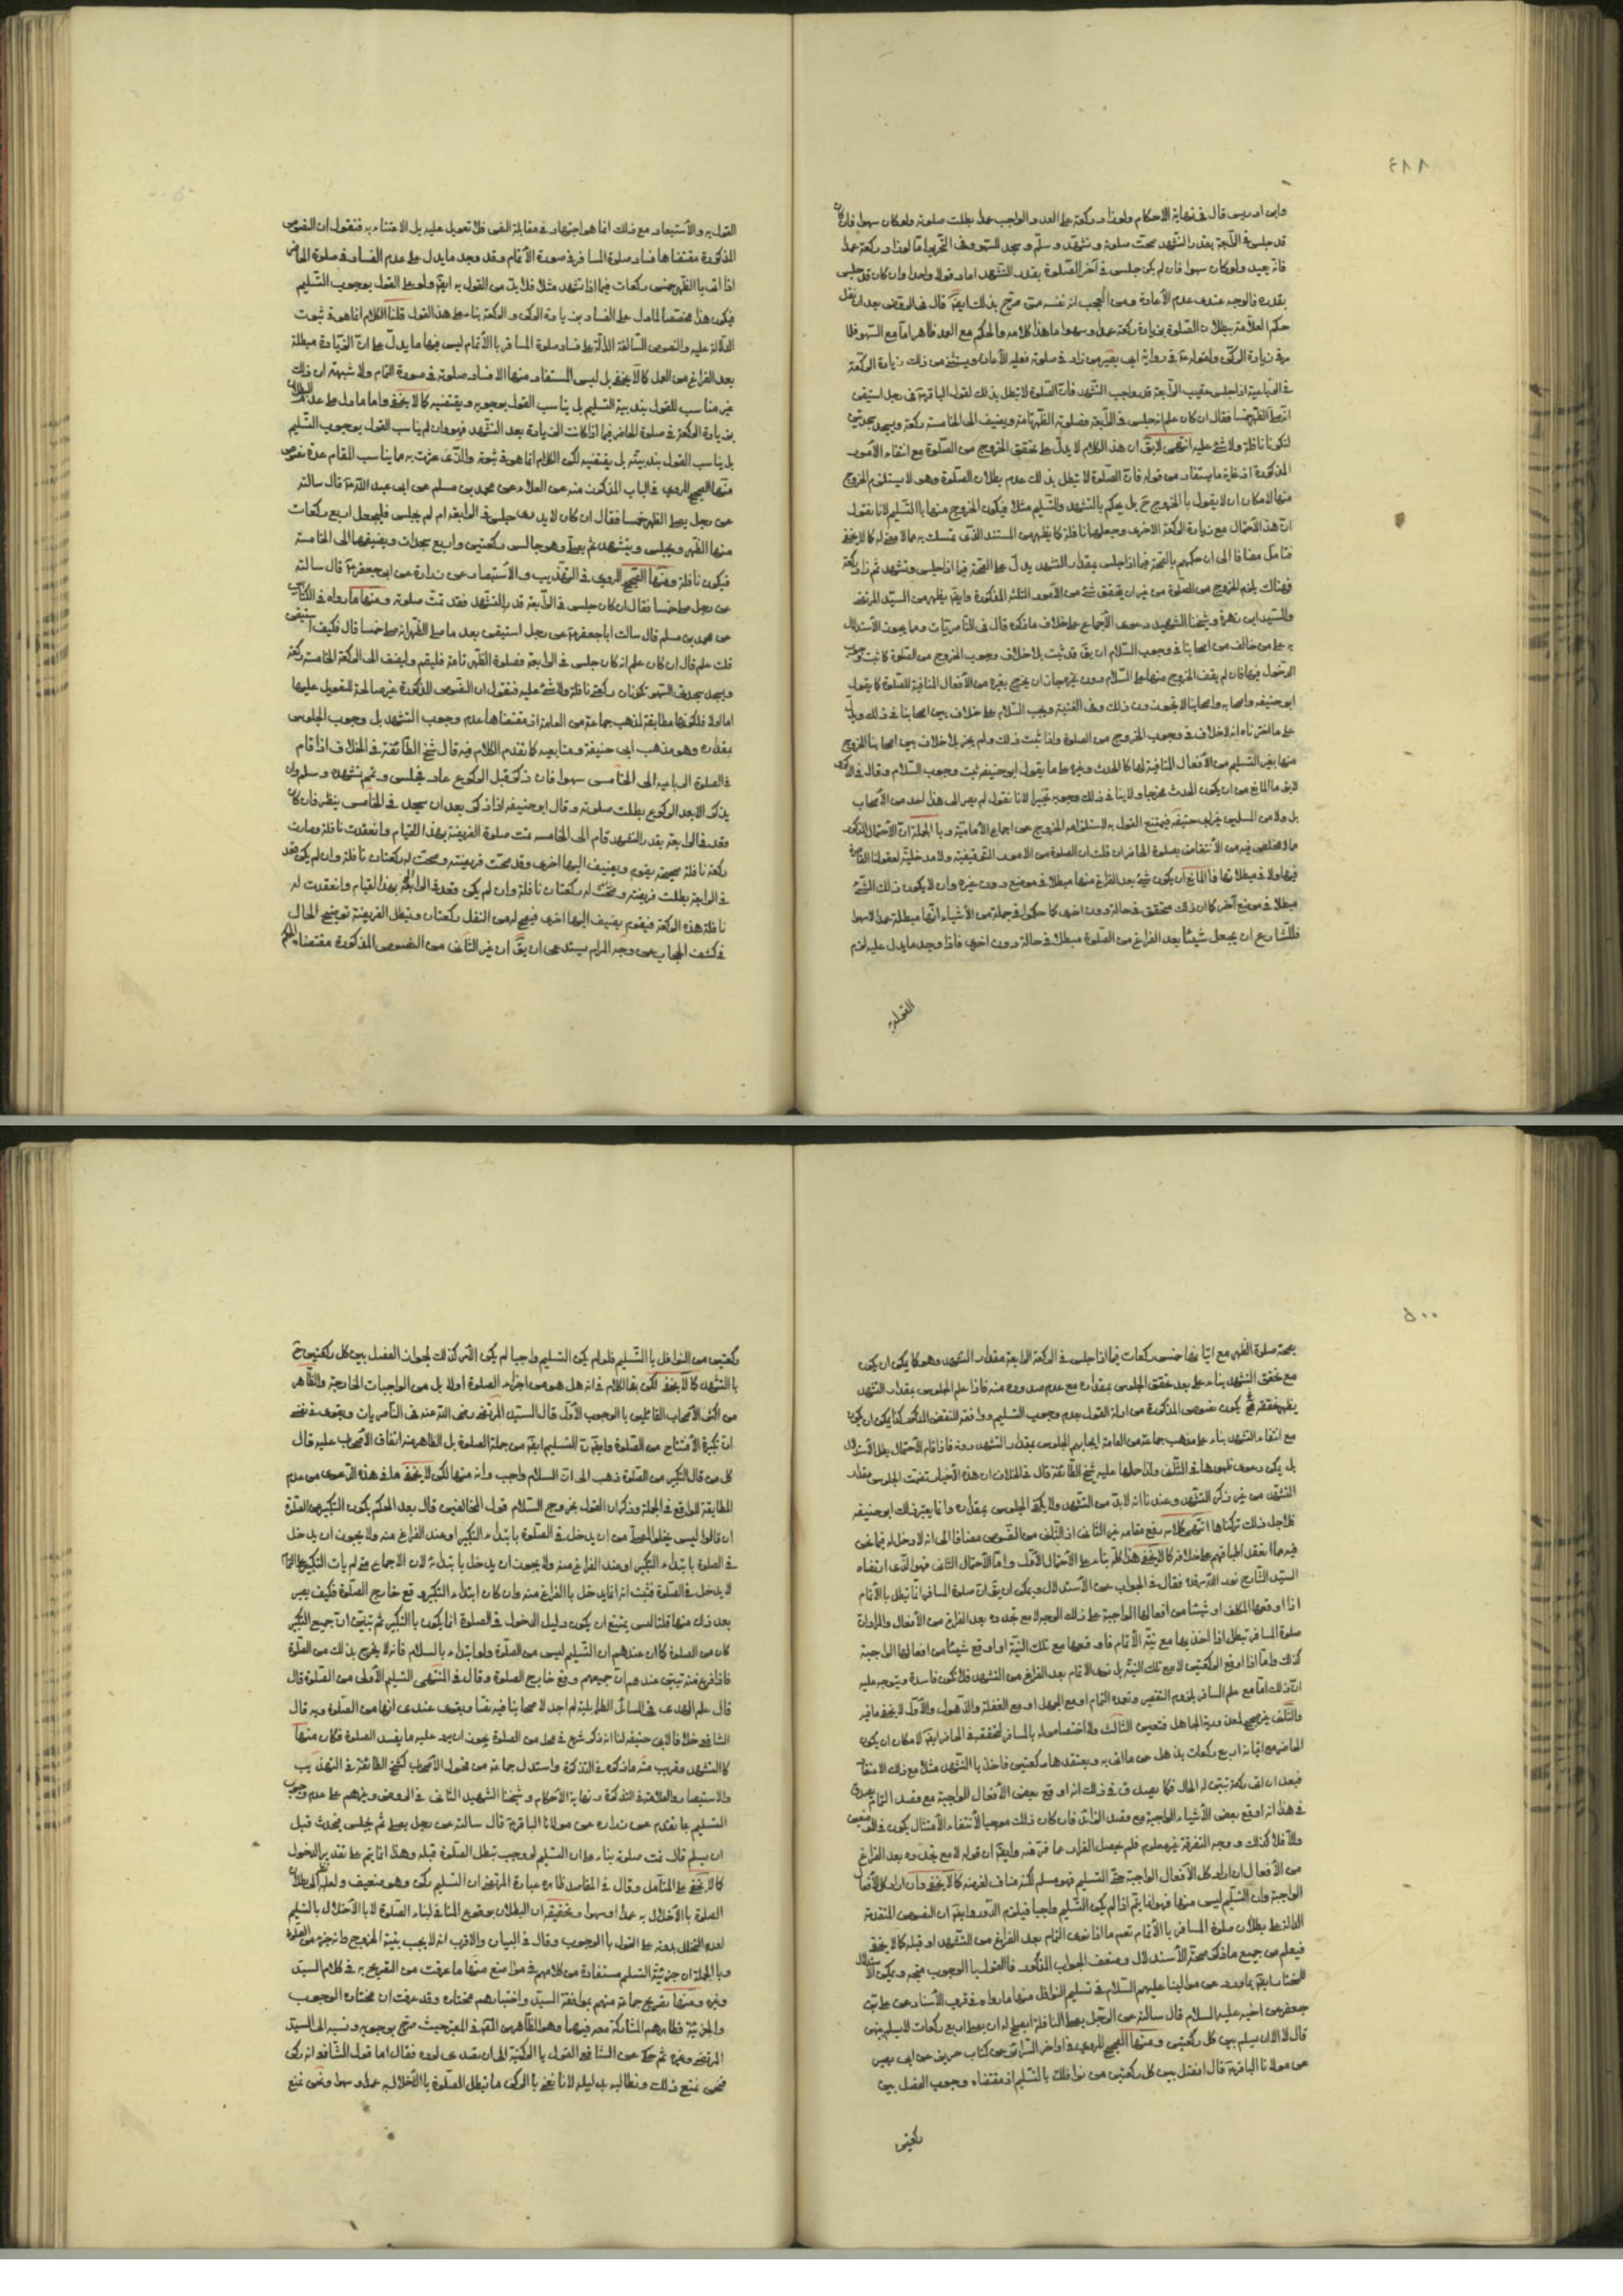 وابن ادريس قال في نهاية الاحكام ولو زاد ركعة على العدد الواجب عمدا بطلت صلوته ولو كان سهوا فان كان
قد جلس في الرابعة بقدر التشهد صحت صلوته وتشهد وسلم وسجد للسهو وفي التحرير اما لو زاد ركعة عمدا
فانه يعيد ولو كان سهوا فان لم يكن جلس في آخر الصلوة بقدر التشهد اعاد قولا واحدا وان كان قد جلس
بقدره فالوجه عندي عدم الاعادة ومن العجب انه نفسه صرح بذلك ايضا قال في الروض بعد ان نقل
حكم العلامة ببطلان الصلوة بزيادة ركعة عمدا وسهوا ما هذا كلامه والحكم مع العمد ظاهر اما مع السهو فلما
مر في زيادة الركن ولقوله ع في رواية ابي بصير من زاد في صلوته فعليه الاعادة ويستثنى من ذلك زيادة الركعة
في الرباعية اذا جلس عقيب الرابعة قدر واجب التشهد فان الصلوة لا تبطل بذلك لقول الباقر ع في رجل استيقن
انه صلى الظهر خمسا فقال ان كان علم انه جلس في الرابعة فصلوته الظهر تامة ويضيف الى الخامسة ركعة ويسجد سجدتين
لتكونا نافلة ولا شئ عليه انتهى لا يق ان هذا الكلام لا يدل على تحقق الخروج من الصلوة مع انتفاء الأمور
المذكورة اذ غاية ما يستفاد من قوله فان الصلوة لا تبطل بذلك عدم بطلان الصلوة وهو لا يستلزم الخروج
منها لامكان ان لا يقول بالخروج ح بل يحكم بالتشهد والتسليم مثلا فيكون الخروج منها بالتسليم لانا نقول
ان هذا الاحتمال مع زيادة الركعة الاخرى وجعلها نافلة كما يظهر من المستند الذي تمسك به مما لا وجه له كما لا يخفى
فتامل مضافا الى ان حكمهم بالصحة فيما اذا جلس بمقدار التشهد يدل على الصحة فيما اذا جلس وتشهد ثم زاد ركعة
فهناك يلزم الخروج من الصلوة من غير ان يتحقق شئ من الأمور الثلثة المذكورة وايضا يظهر من السيد المرتضى
والسيد ابن زهرة وشيخنا الشهيد دعوى الاجماع على خلاف ما ذكره قال في الناصريات ومما يجوز الاستدلال
به على من خالف من اصحابنا في وجوب السلام ان يق قد ثبت بلا خلاف وجوب الخروج من الصلوة كما ثبت وجوب
الدخول فيها فان لم يقف الخروج منها على السلام دون غيره جاز ان يخرج بغيره من الأفعال المنافية للصلوة كما يقول
ابو حنيفة واصحابه واصحابنا لا يجوزون ذلك وفي الغنية ويجب السلام على خلاف بين اصحابنا في ذلك ويدل
على ما اخترناه انه لا خلاف في وجوب الخروج من الصلوة واذا ثبت ذلك ولم يجز بلا خلاف بين اصحابنا الخروج
منها بغير التسليم من الأفعال المنافية لها كالحدث وغيره على ما يقول ابو حنيفة ثبت وجوب السلام وقال في الذكرى
لا يق ما المانع من ان يكون الحدث مخرجا ولا ينافي ذلك وجوبه تخييرا لانا نقول لم يصر الى هذا احد من الأصحاب
بل ولا من المسلمين غير ابي حنيفة فيمتنع القول به لاستلزامه الخروج عن اجماع الامامية وبالجملة ان الاحتمال المذكور
مما لا مخلص فيه من الانتقاض بصلوة الحاضر ان قلت ان الصلوة من الأمور التوقيفية ولا مدخلية لعقولنا القاصرة
فيها ولا في مبطلاتها فما المانع ان يكون شئ بعد الفراغ منها مبطلا في موضع دون غيره وان لا يكون ذلك الشئ
مبطلا في موضع آخر كما ان ذلك متحقق في حالة دون اخرى كما حكموا في جملة من الأشياء انها مبطلة عمدا لا سهوا
فللشارع ان يجعل شيئا بعد الفراغ من الصلوة مبطلا في حالة دون اخرى فاذا وجد ما يدل عليه لزم
القول به
القول به والاستبعاد مع ذلك انما هو اجتهاد في مقابلة النص فلا تعويل عليه بل الاعتناء به فنقول ان النصوص
المذكورة مقتضاها فساد صلوة المسافر في صورة الأتمام وقد وجد ما يدل على عدم الفساد في صلوة الحاضر
اذا اتى بالظهر خمس ركعات فيما اذا تشهد مثلا فلا بد من القول به ايضا ولو على القول بوجوب التسليم
فيكون هذا مخصصا لما دل على الفساد بزيادة الركن والركعة بناء على هذا القول قلنا الكلام انما هو في ثبوت
الدلالة عليه والنصوص السالفة الدالة على فساد صلوة المسافر بالأتمام ليس فيها ما يدل على ان الزيادة مبطلة
بعد الفراغ من العمل كما لا يخفى بل ليس المستفاد منها الا فساد صلوته في صورة التمام ولا شبهة ان ذلك
غير مناسب للقول بندبية التسليم بل يناسب القول بوجوبه ويقتضيه كما لا يخفى واما ما دل على عدم البطلان
بزيادة الركعة في صلوة الحاضر فيما اذا كانت الزيادة بعد التشهد فهو وان لم يناسب القول بوجوب التسليم
بل يناسب القول بندبيته بل يقتضيه لكن الكلام انما هو في ثبوته والذي عثرت به مما يناسب المقام عدة نصوص
منها الصحيح المروي في الباب المذكور منه عن العلاء عن محمد بن مسلم عن ابي عبد الله ع قال سالته
عن رجل صلى الظهر خمسا فقال ان كان لا يدري جلس في الرابعة ام لم يجلس فليجعل اربع ركعات
منها الظهر ويجلس ويتشهد ثم يصلي وهو جالس ركعتين واربع سجدات ويضيفها الى الخامسة
فيكون نافلة ومنها الصحيح المروي في التهذيب والاستبصار عن زرارة عن ابي جعفر ع قال سالته
عن رجل صلى خمسا فقال ان كان جلس في الرابعة قدر التشهد فقد تمت صلوته ومنها ما رواه في الكتابين
عن محمد بن مسلم قال سالت ابا جعفر ع عن رجل استيقن بعد ما صلى الظهر انه صلى خمسا قال فكيف استيقن
قلت علم قال ان كان علم انه كان جلس في الرابعة فصلوة الظهر تامة فليقم وليضف الى الركعة الخامسة ركعة
ويسجد سجدتي السهو تكونان ركعتي نافلة ولا شئ عليه فنقول ان النصوص المذكورة غير صالحة للتعويل عليها
اما اولا فلكونها مطابقة لمذهب جماعة من العامة اذ مقتضاها عدم وجوب التشهد بل وجوب الجلوس
بقدره وهو مذهب ابي حنيفة ومتابعيه كما تقدم الكلام فيه قال شيخ الطائفة في الخلاف اذا قام
في الصلوة الرباعية الى الخامسة سهوا فان ذكر قبل الركوع عاد فجلس وتمم تشهده وسلم وان
لم يذكر الا بعد الركوع بطلت صلوته وقال ابو حنيفة اذا ذكر بعد ان سجد في الخامسة ينظر فان كان
قعد في الرابعة بقدر التشهد قام الى الخامسة تمت صلوة الفريضة بهذا القيام وانعقدت نافلة وصارت
ركعة نافلة صحيحة يقوم ويضيف اليها اخرى وقد صحت فريضته وصحت له ركعتان نافلة وان لم يكن قعد
في الرابعة بطلت فريضته وصحت له ركعتان نافلة وان لم يكن قعد في الرابعة بهذا القيام وانعقدت له
نافلة هذه الركعة فيقوم يضيف اليها اخرى فيصح له من النفل ركعتان وتبطل الفريضة توضيح الحال
في كشف الحجاب عن وجه المرام يستدعي ان يق ان غير الثاني من النصوص المذكورة مقتضاه الحكم
بصحة صلوة الظهر مع اتيانها خمس ركعات فيما اذا جلس في الركعة الرابعة مقدار التشهد وهو كما يمكن ان يكون
مع تحقق التشهد بناء على بعد تحقق الجلوس بمقداره مع عدم صدوره منه فاذا علم الجلوس بمقدار التشهد
يظهر تحققه فح يكون نصوص المذكورة من ادلة القول بعدم وجوب التسليم ووافقه للنقض المذكور كذا يمكن ان يكون
مع انتفاء التشهد بناء على مذهب جماعة من العامة ايجابهم الجلوس بمقدار التشهد دونه فاذا قام الاحتمال بطل الاستدلال
بل يمكن دعوى ظهورها في الثاني ولذا حملها عليه شيخ الطائفة قال في الخلاف ان هذه الأخبار تضمنت الجلوس مقدار
التشهد من غير ذكر التشهد وعندنا انه لا بد من التشهد ولا يكفي الجلوس بمقداره وانما يعتبر ذلك ابو حنيفة
فلاجل ذلك تركناها انتهى كلامه رفع مقامه
السيد الشارح نور الله مرقده فقال في الجواب عن الاستدلال ويمكن ان يق ان صلوة المسافر انما تبطل بالأتمام
اذا اوقعها المكلف او شيئا من افعالها الواجبة على ذلك الوجه لا مع تجدده بعد الفراغ من الأفعال والمراد ان
صلوة المسافر تبطل اذا اخذ بها مع نية الأتمام فاوقعها مع تلك النية او اوقع شيئا من افعالها الواجبة
كذلك واما اذا اوقع الركعتين لا مع تلك النية بل نوى الأتمام بعد الفراغ من التشهد فلا تكون فاسدة ويتوجه عليه
ان ذلك اما مع علم المسافر بلزوم التقصير وتعمده التمام او مع الجهل او مع الغفلة والذهول والأول لا يخفى ما فيه
والثاني غير صحيح لمعذورية الجاهل فتعين الثالث ولا اختصاص له بالمسافر لتحققه في الحاضر ايضا لامكان ان يكون
الحاضر مع اتيانه اربع ركعات يذهل عن ما اتى به ويعتقدها ركعتين فاخذ بالتشهد مثلا مع ذلك الاعتقاد
فبعد ان اتى ركعة تبين له الحال فكما يصدق في ذلك انه اوقع بعض الأفعال الواجبة مع قصد التمام يصدق
في هذا انه اوقع بعض الأشياء الواجبة مع قصد الزائد فان كان ذلك موجبا لانتفاء الامتثال يكون في المقامين
والا فلا كذلك ووجه التفرقة غير معلوم فلم يحصل الفرار عما فر منه وايضا ان قوله لا مع تجدده بعد الفراغ
من الأفعال ان اراد كل الأفعال الواجبة حتى التسليم فهو مسلم لكنه مناف لغرضه كما لا يخفى وان اراد كل الأفعال
الواجبة وان التسليم ليس منها فهو انما يتم اذا لم يكن التسليم واجبا فيلزم الدور وايضا ان النصوص المتقدمة
الدالة على بطلان صلوة المسافر بالأتمام تعم ما اذا نوى التمام بعد الفراغ من التشهد او قبله كما لا يخفى
فيعلم من جميع ما ذكر صحة الاستدلال وضعف الجواب المذكور فالقول بالوجوب متجه ويمكن الاستدلال
للمختار ايضا بما ورد عن موالينا عليهم السلام في تسليم النوافل منها ما رواه في قرب الأسناد عن علي بن
جعفر عن اخيه عليه السلام قال سالته عن الرجل يصلي النافلة ايصلح له ان يصلي اربع ركعات لا يسلم بينهن
قال لا الا ان يسلم بين كل ركعتين ومنها الصحيح المروي في اواخر السرائر من كتاب حريز عن ابي بصير
عن مولانا الباقر ع قال افصل بين كل ركعتين من نوافلك بالتسليم اذ مقتضاه وجوب الفصل بين
ركعتين
ركعتين من النوافل بالتسليم فلو لم يكن التسليم واجبا لم يكن الأمر كذلك لجواز الفصل بين كل ركعتين ح
بالتشهد كما لا يخفى لكن بقي الكلام في انه هل هو من اجزاء الصلوة او لا بل من الواجبات الخارجية والظاهر
من اكثر الأصحاب القائلين بالوجوب الأول قال السيد المرتضى رضي الله عنه في الناصريات ويقوى في نفسي
ان تكبيرة الأفتتاح من الصلوة وايضا ان التسليم ايضا من جملة الصلوة بل الظاهر منه اتفاق الأصحاب عليه قال
كل من قال التكبير من الصلوة ذهب الى ان السلام واجب وانه منها لكن لا يخفى ما في هذه الدعوى من عدم
المطابقة للواقع في الجملة وذكر ان القول بخروج السلام قول المخالفين قال بعد الحكم بكون التكبير من الصلوة
ان قالوا ليس يخلو المصلي من ان يدخل في الصلوة بابتداء التكبير او عند الفراغ منه ولا يجوز ان يدخل
في الصلوة بابتداء التكبير او عند الفراغ منه ولا يجوز ان يدخل بابتدائه لان الاجماع متى لم يات التكبير على التمام
لا يدخل في الصلوة فثبت انه انما يدخل بالفراغ منه وان كان ابتداء التكبير وقع خارج الصلوة فكيف يصير
بعد ذلك منها قلنا ليس يمتنع ان يكون دليل الدخول في الصلوة انما يكون بالتكبير ثم تبين ان جميع التكبير
كان من الصلوة كما ان عندهم ان التسليم ليس من الصلوة ولو ابتداء بالسلام فانه لا يخرج بذلك من الصلوة
فاذا فرغ منه تبين عندهم ان جميعهم وقع خارج الصلوة وقال في المنتهى التسليم الأولى من الصلوة قال
قال علم الهدى في المسائل الطرابلسية لم اجد لاصحابنا فيه نصا ويقوى عندي انها من الصلوة وبه قال
الشافعي خلافا لابي حنيفة لنا انه ذكر شرع في محل من الصلوة يجوز ان يرد عليه ما يفسد الصلوة فكان منها
كالتشهد وقريب منه ما ذكره في التذكرة واستدل جماعة من فحول الأصحاب كشيخ الطائفة في التهذيب
والاستبصار والعلامة في التذكرة ونهاية الأحكام وشيخنا الشهيد الثاني في الروض وغيرهم على عدم وجوب
التسليم بما تقدم عن زرارة عن مولانا الباقر ع قال سالته عن رجل يصلي ثم يجلس فيحدث قبل
ان يسلم قال تمت صلوته بناء على ان التسليم لو وجب تبطل الصلوة قبله وهذا انما يتم على تقدير الدخول
كما لا يخفى على المتامل وقال في المقاصد ظاهر عبارة المرتضى ان التسليم ركن وهو ضعيف
الصلوة بالأخلال به عمدا او سهوا وتحقيقه ان البطلان بوقوع المنافي في اثناء الصلوة لا بالأخلال بالتسليم
لعدم التحلل بدونه على القول بالوجوب وقال في البيان والاقرب انه لا يجب بنية الخروج وانه جزء من الصلوة
وبالجملة ان جزئية التسليم مستفادة من كلامهم في مواضع منها ما عرفت من التصريح به في كلام السيد
وغيره ومنها تصريح جماعة منهم بموافقة السيد واختيارهم مختاره وقد عرفت ان مختاره الوجوب
والجزئية فظاهرهم المشاركة معه فيهما وهو الظاهر من المحقق في المعتبر حيث صرح بوجوبه ونسبه الى السيد
المرتضى وغيره ثم حكى عن الشافعي القول بالركنية الى ان تصدى لرده فقال اما قول الشافعي انه ركن
فنحن نمنع ذلك ونطالبه بدليله لانا نعني بالركن ما تبطل الصلوة بالأخلال به عمدا وسهوا ونحن نمنع